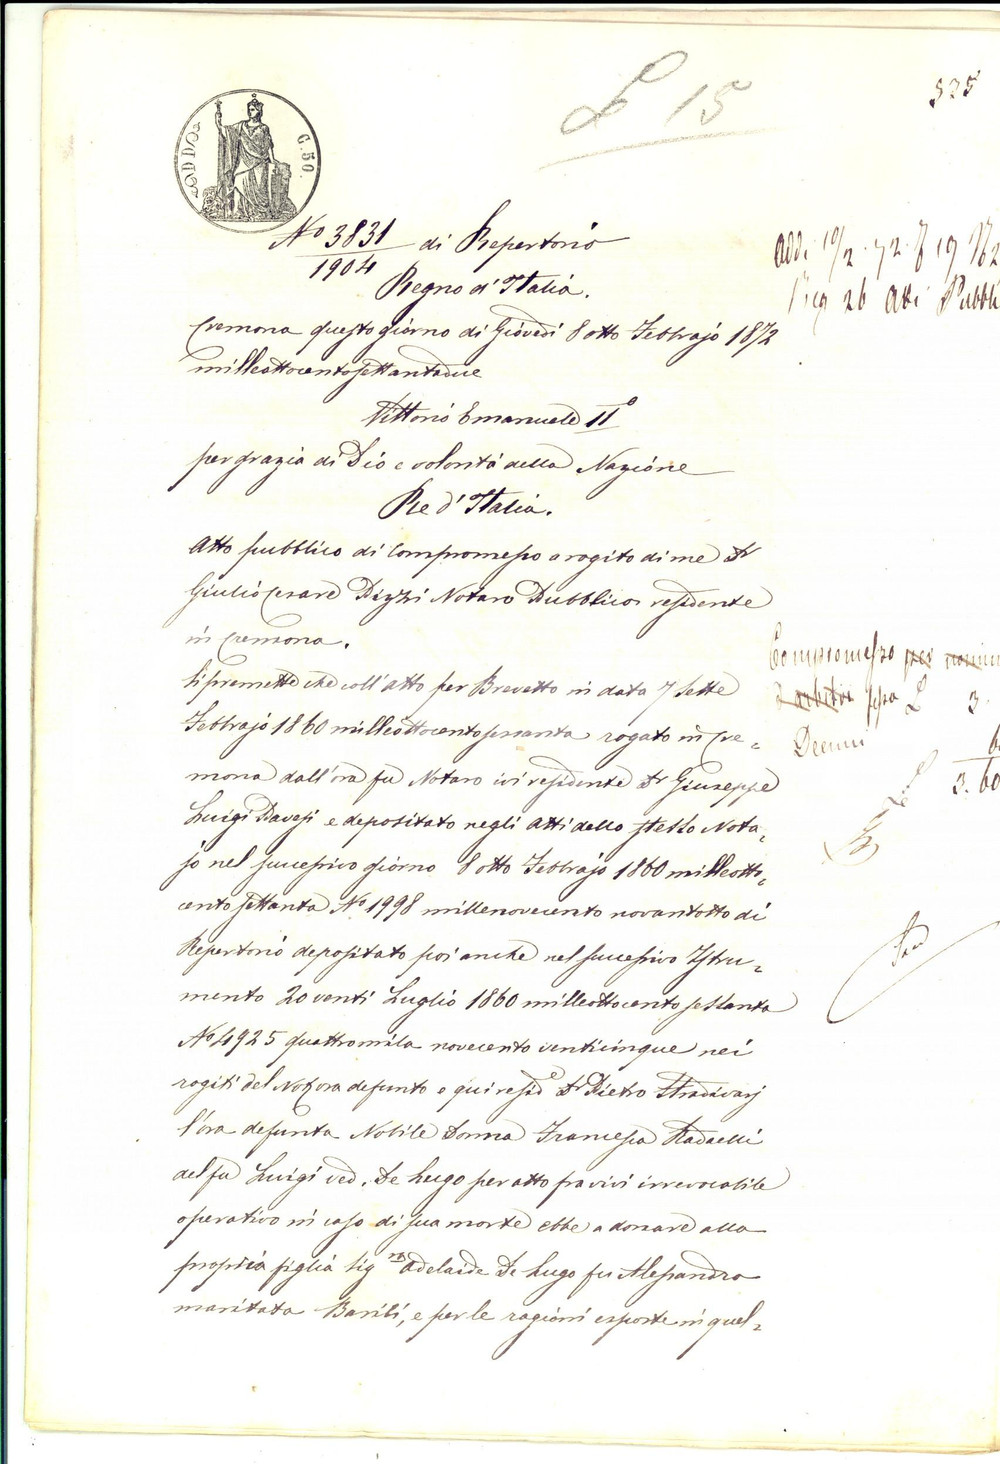 £ 15
525
C. 50.
No 3831 di Repertorio
1904
Regno d'Italia.
Cremona questo giorno di Giovedì 8 otto Febbrajo 1872
milleottocentosettantadue
Vittorio Emanuele II°
per grazia di Dio e volontà della Nazione
Re d'Italia.
Atto pubblico di Compromesso a rogito di me Dr
Giulio Cesare Pizzi Notaro Pubblico residente
in Cremona.
Si premette che coll'atto per Brevetto in data 7 sette
Febbrajo 1860 milleottocentosessanta rogato in Cre=
mona dall'ora fu Notaro ivi residente Dr Giuseppe
Luigi Davesi e depositato negli atti dello stesso Nota=
jo nel successivo giorno 8 otto Febbrajo 1860 milleotto=
cento settanta No 1998 millenovecento novantotto di
Repertorio depositato poi anche nel successivo Istru=
mento 20 venti Luglio 1860 milleottocento sessanta
No 4925 quattromila novecento venticinque nei
rogiti del Not ora defunto e qui resid e Dr Pietro Stradivarj
l'ora defunta Nobile Donna Francesca Radaelli
del fu Luigi ved. De Lugo per atto fra vivi irrevocabile
operativo in caso di sua morte ebbe a donare alla
propria figlia Sig ra Adelaide De Lugo fu Alessandro
maritata Barili, e per le ragioni esposte in quel=
Addì 10/2 72
Reg 26 Atti Pubbli
Compromesso per
arbitri fissa L 3.
Decimi 60
L 3.60